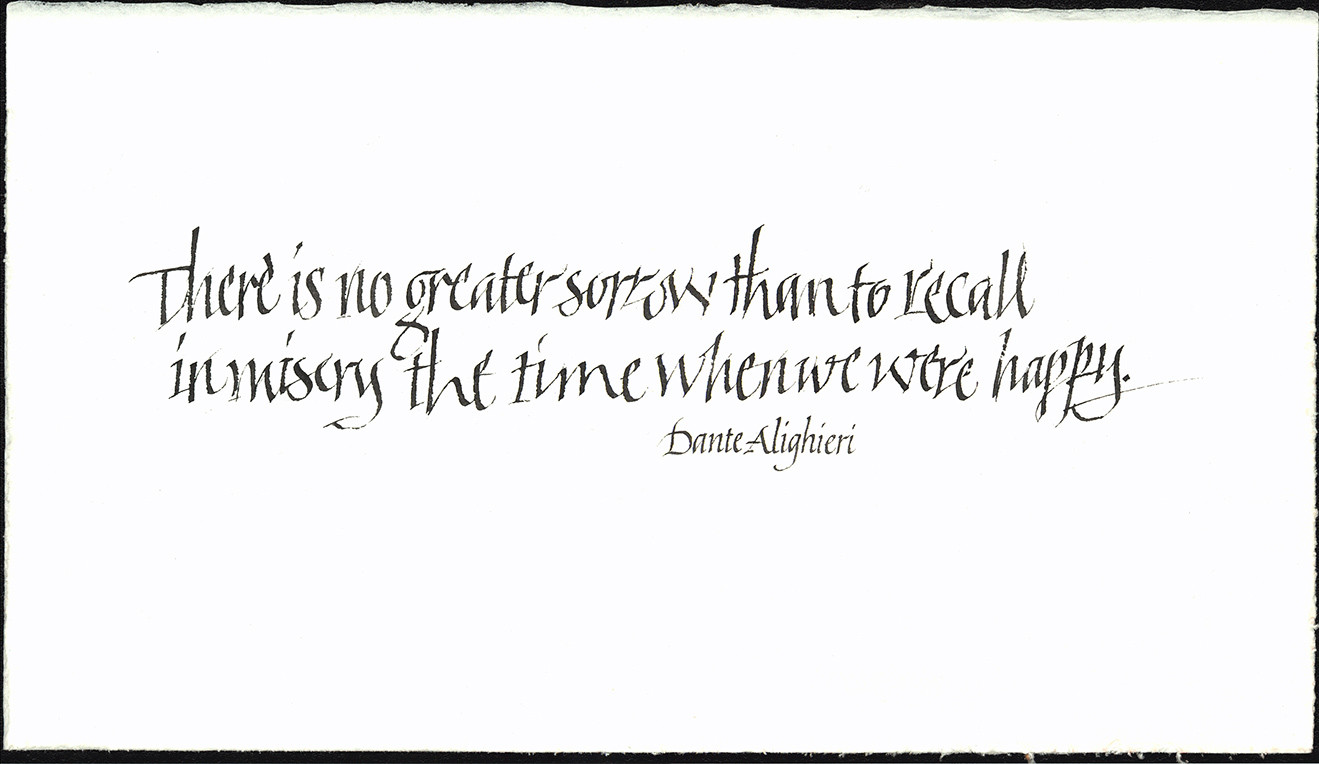 There is no greater sorrow than to recall
in misery the time when we were happy.
Dante Alighieri